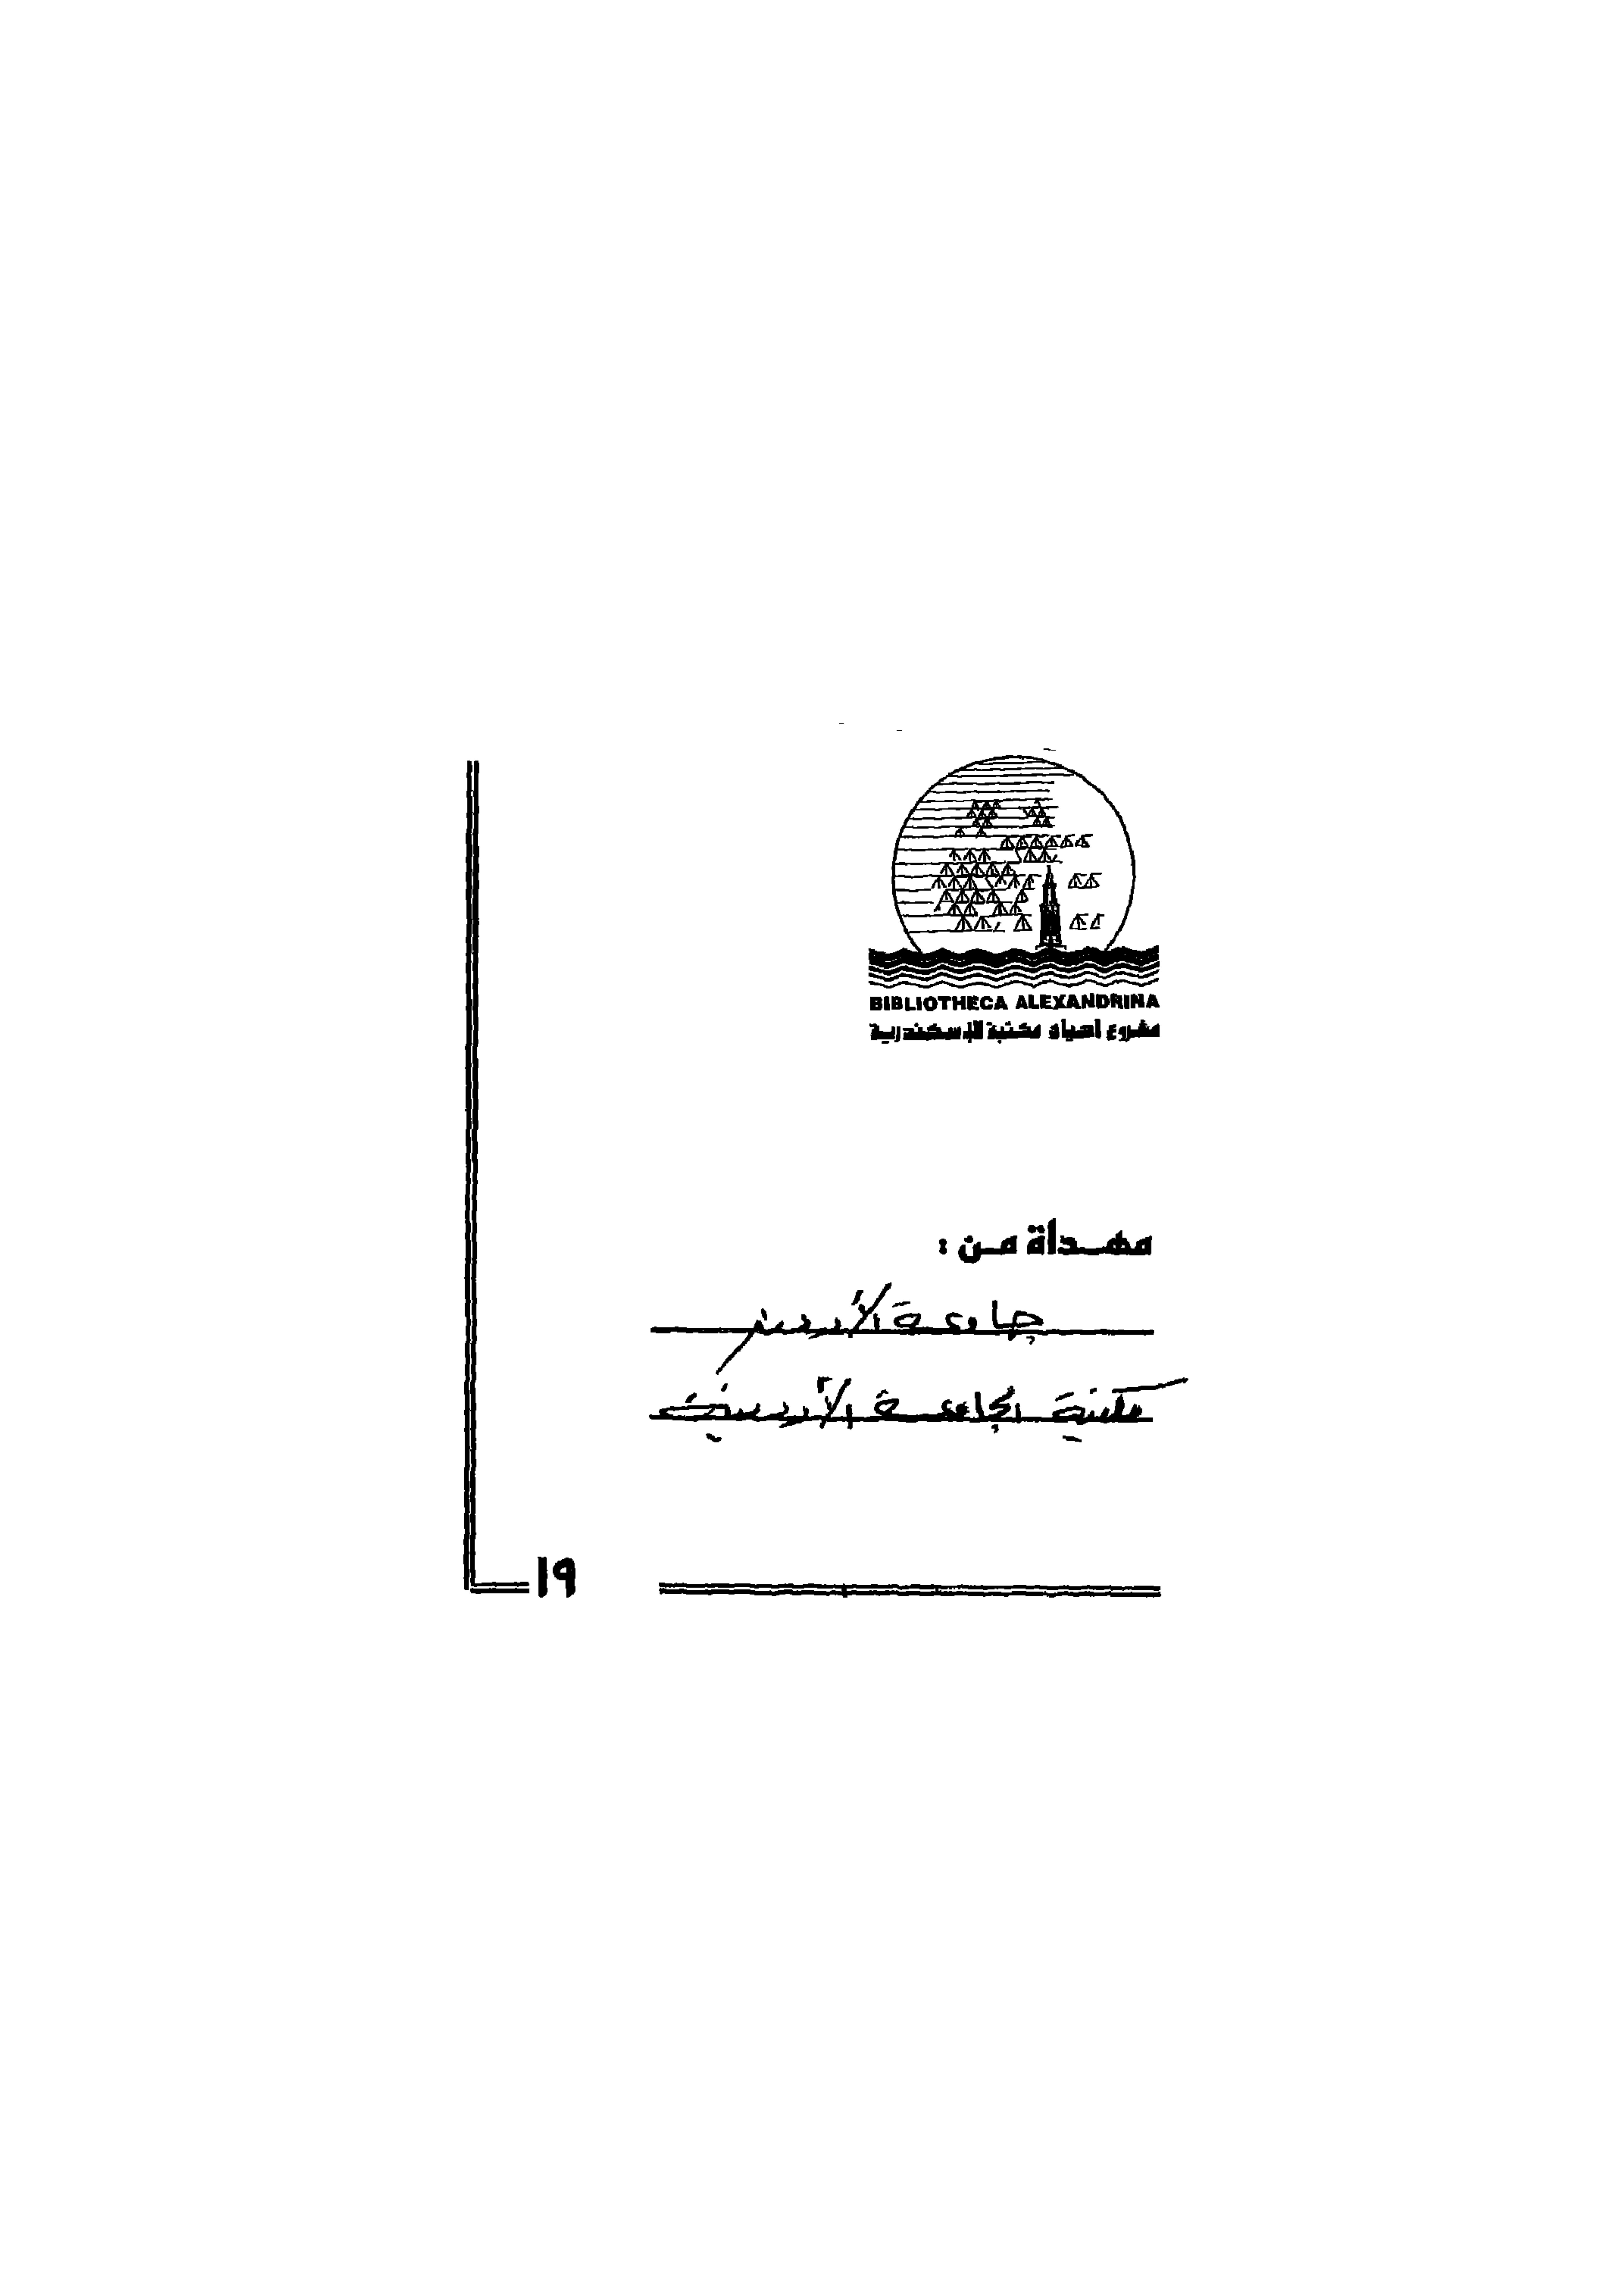 BIBLIOTHECA ALEXANDRINA
مشروع احياء مكتبة الإسكندرية
مهداة من :
جامعة الأردن
مكتبة الجامعة الأردنية
١٩